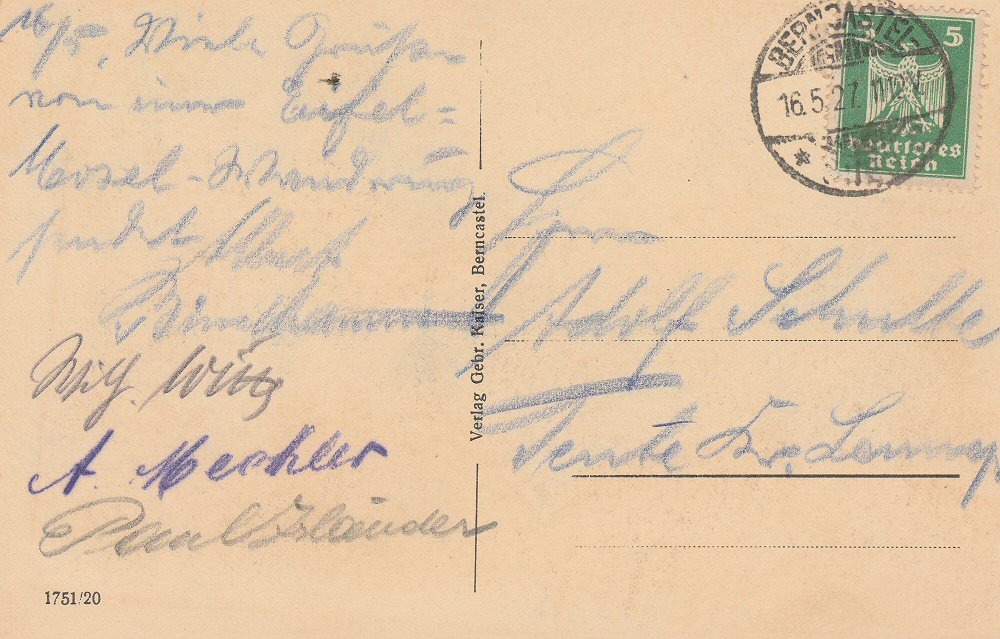 16/5. Viele Grüße
von einer Eifel=
Mosel-Wandrung
sendet Albert
Wilh. Witt
A. Mechler
Paul
1751/20
Verlag Gebr. Kaiser, Berncastel.
BERNCASTEL
16.5.27. 11-12 V.
5
Deutsches
Reich
Herrn
Adolf Schulte
Tente Kr. Lennep